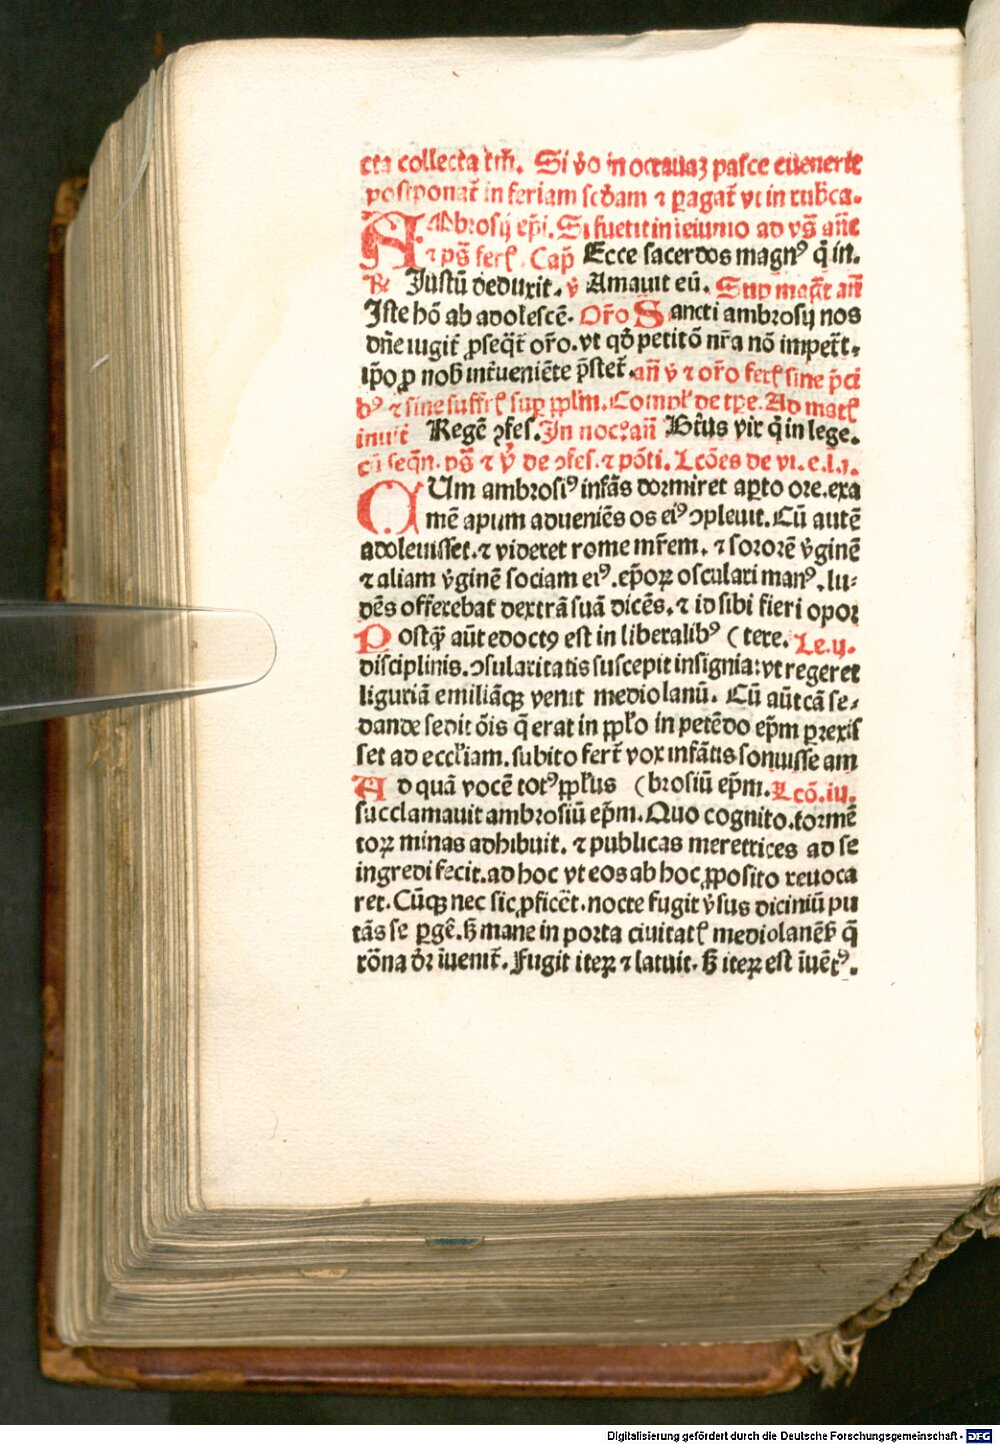 cta collecta tm̄. Si v̊o in octauaꝫ pasce euenerit
postponat̄ in feriam scḋam ⁊ ꝑagat̄ vt in rub̄ca.
AMbrosij ep̄i. Si fuerit in ieiunio ad vs̄ ān̄e
⁊ ps̄ ferl̄. Cap̄ Ecce sacerdos magnꝰ q̄ in.
℞ Justū deduxit. ℣ Amauit eū. Sup̄ maḡt an̄
Iste hō ab adolescē. Or̄o Sancti ambrosij nos
dn̄e iugit̄ ꝓseq̄t or̄o. vt qḋ petitō nr̄a nō impet̄t.
ip̄o ꝓ nob̄ int̄ueniēte p̄stet̄. an̄ ℣ ⁊ or̄o ferl̄ sine p̄ci
bꝰ ⁊ sine suffrl̄ sup̲ ppl̄m. Compl̄ de tp̲e. Ad matl̄
inuit̄ Regē ꝯfes. In noct. an̄ Bt̄us vir q̄ in lege.
cū seqn̄. ps̄ ⁊ ℣ de ꝯfes. ⁊ pōti. Lcōes de vi. e. l. i.
CUm ambrosiꝰ infās dormiret aꝑto ore. exa
mē apum adueniēs os eiꝰ ꝯpleuit. Cū autē
adoleuisset. ⁊ videret rome mr̄em. ⁊ sororē v̄ginē
⁊ aliam v̄ginē sociam eiꝰ. ep̄oꝝ osculari manꝰ. lu⸗
dēs offerebat dextrā suā dicēs. ⁊ id sibi fieri opoꝛ
Postq̄ȝ aūt edoctꝰ est in liberalibꝰ (tere. Le. ij.
disciplinis. ꝯsularitatis suscepit insignia: vt regeret
liguriā emiliāqꝫ venit mediolanū. Cū aūt cā se⸗
dande sedit ōis q̄ erat in ppl̄o in petēdo ep̄m ꝑrexis
set ad eccl̄iam. subito fert̄ vox infātis sonuisse am
Ad quā vocē totꝰ ppl̄us (brosiū ep̄m. Lcō. iij.
succlamauit ambrosiū ep̄m. Quo cognito. tormē
toꝝ minas adhibuit. ⁊ publicas meretrices ad se
ingredi fecit. ad hoc vt eos ab hoc ꝓposito reuoca
ret. Cūqꝫ nec sic ꝓficēt. nocte fugit v̄sus diciniū pu
tās se ꝑgē. h̄ mane in porta ciuitatl̄ mediolanēs̄ q̄
rōna d̄r īuenit̄. Fugit iteꝝ ⁊ latuit. s̄ iteꝝ est īuētꝰ.
Digitalisierung gefördert durch die Deutsche Forschungsgemeinschaft - DFG